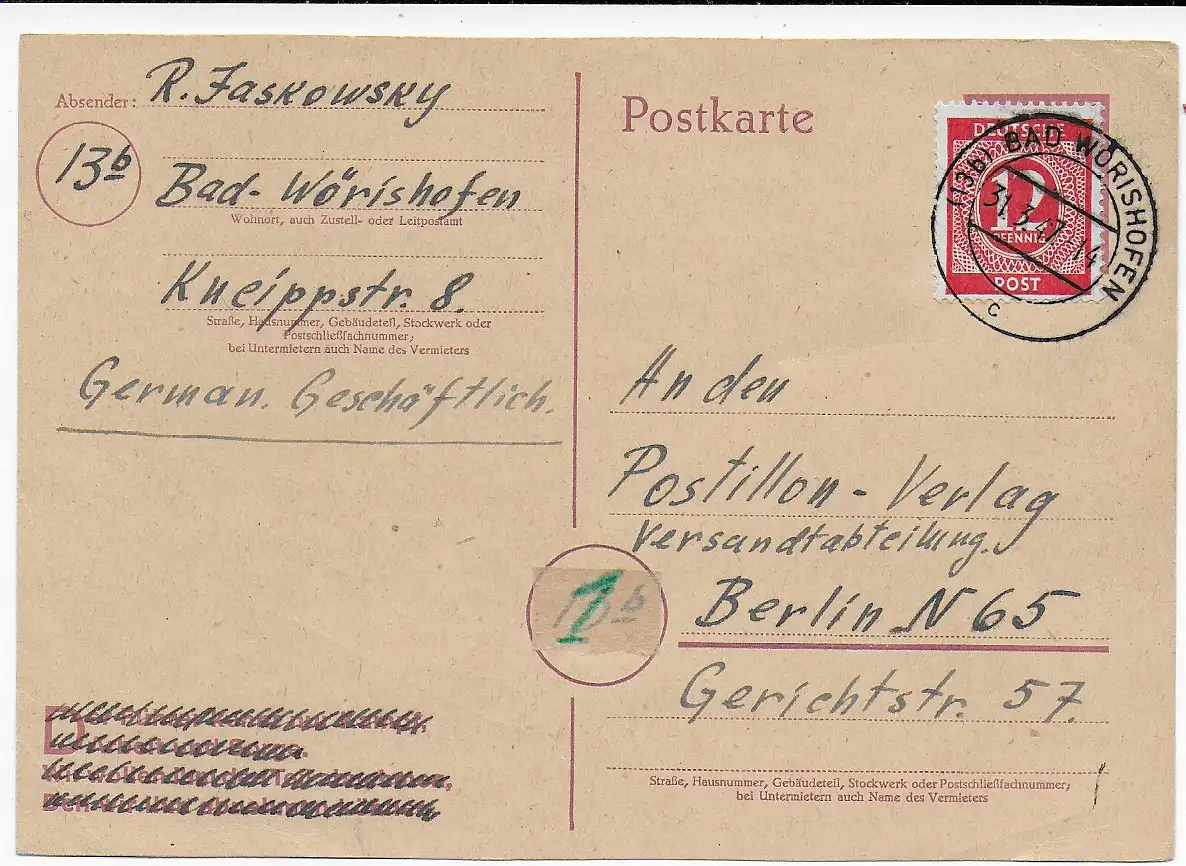 Absender: R. Jaskowsky
13b
Bad-Wörishofen
Wohnort, auch Zustell- oder Leitpostamt
Kneippstr. 8.
Straße, Hausnummer, Gebäudeteil, Stockwerk oder
Postschließfachnummer;
bei Untermietern auch Name des Vermieters
German. Geschäftlich.
Postkarte
DEUTSCHE
12
PFENNIG
POST
(13b) BAD WÖRISHOFEN
31.3.47.-14
c
An den
Postillon-Verlag
Versandtabteilung.
1
Berlin N 65
Gerichtstr. 57.
Straße, Hausnummer, Gebäudeteil, Stockwerk oder Postschließfachnummer;
bei Untermietern auch Name des Vermieters